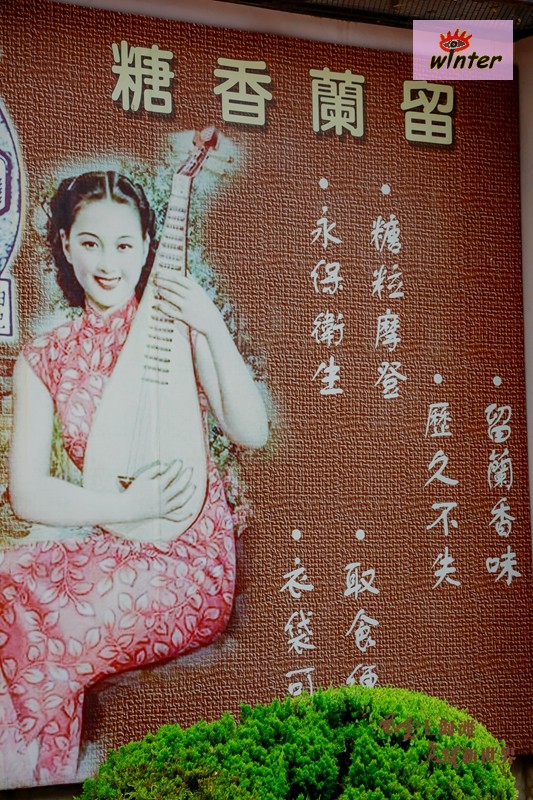 winter
留蘭香糖
留蘭香味
歷久不失
糖粒摩登
永保衛生
取食便
衣袋可